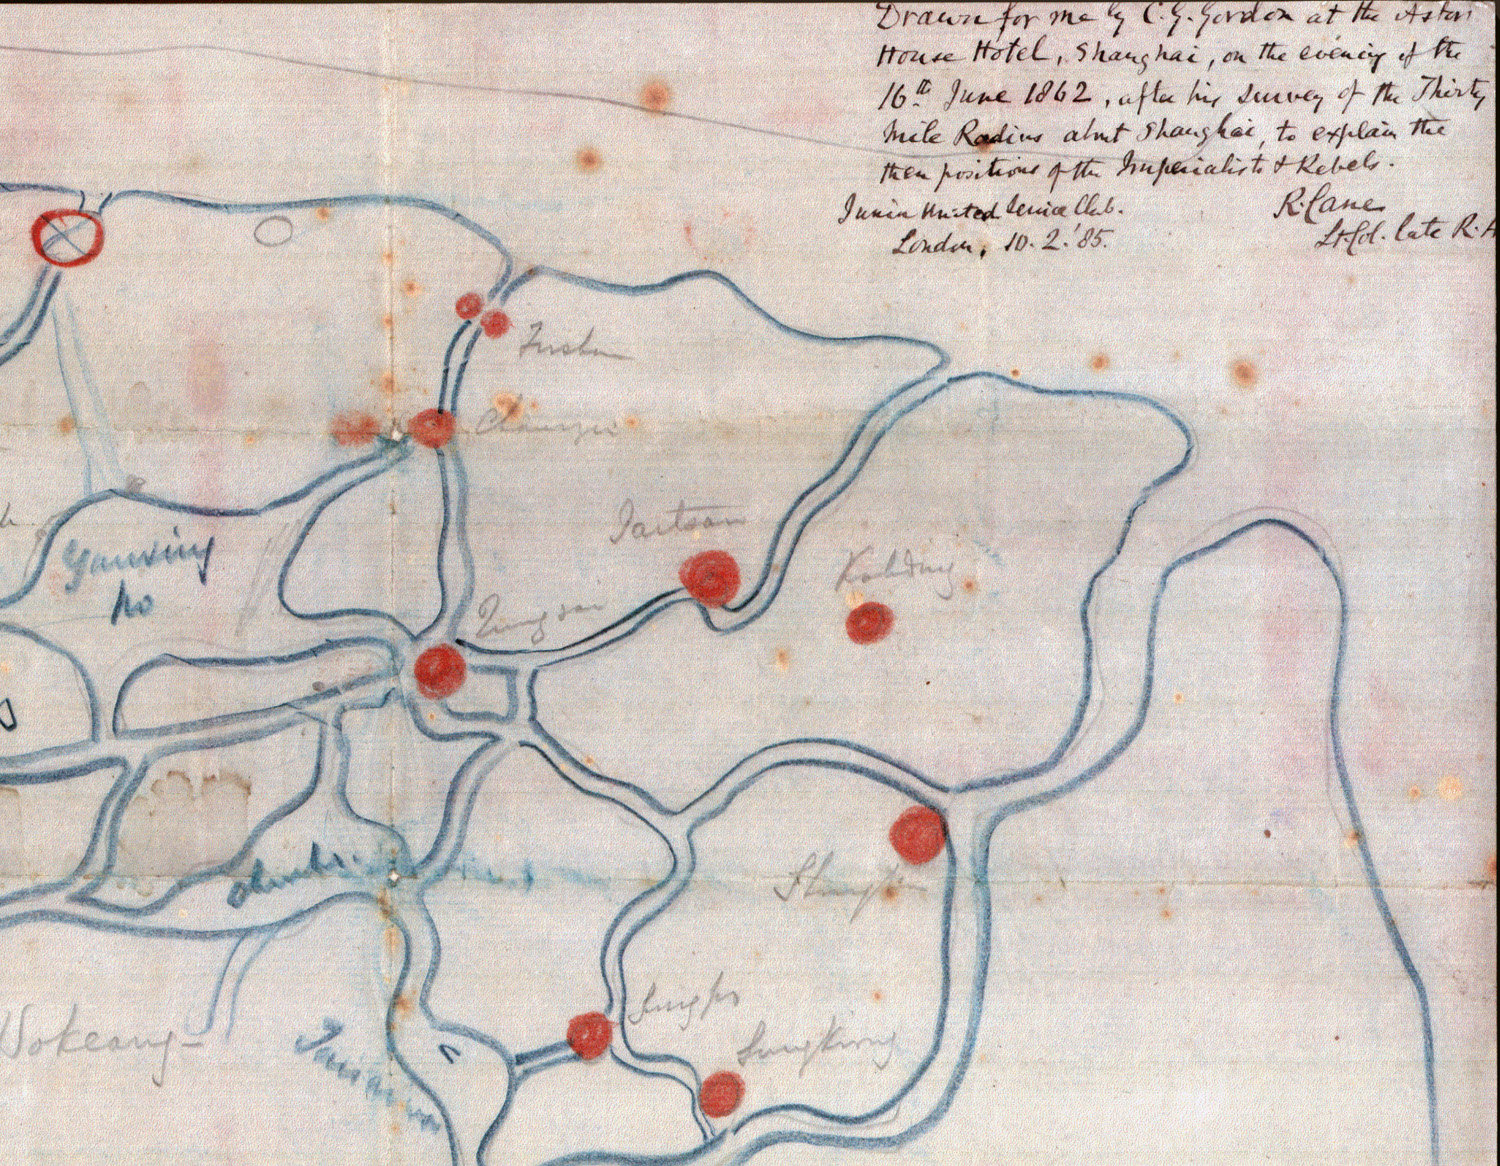 Drawn for me by C.G. Gordon at the Astor
House Hotel, Shanghai, on the evening of the
16th June 1862, after his survey of the Thirty
Mile Radius about Shanghai, to explain the
then positions of the Imperialists & Rebels.
Junior United Service Club.
London, 10.2.'85.
R. Cane
Lt. Col. late R.A
Fushan
Chanzu
Taitsan
Kahding
Yansing
ho
Quinsan
Shanghai
Singpo
Sungkiong
Wokeang